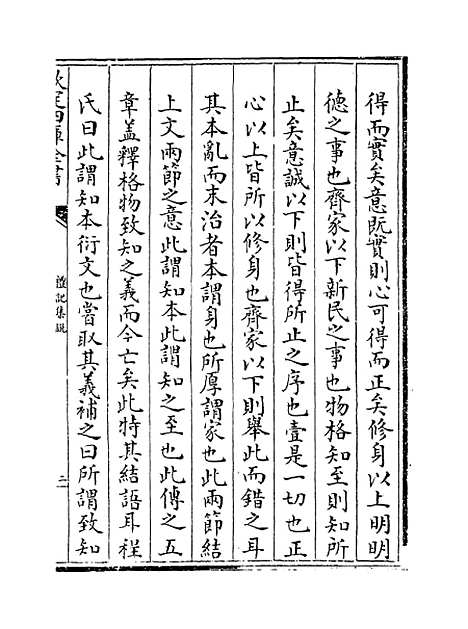 得而實矣意既實則心可得而正矣修身以上明明
德之事也齊家以下新民之事也物格知至則知所
止矣意誠以下則皆得所止之序也壹是一切也正
心以上皆所以修身也齊家以下則舉此而錯之耳
其本亂而末治者本謂身也所厚謂家也此兩節結
上文兩節之意此謂知本此謂知之至也此傳之五
章蓋釋格物致知之義而今亡矣此特其結語耳程
氏曰此謂知本衍文也當取其義補之曰所謂致知
欽定四庫全書
禮記集說